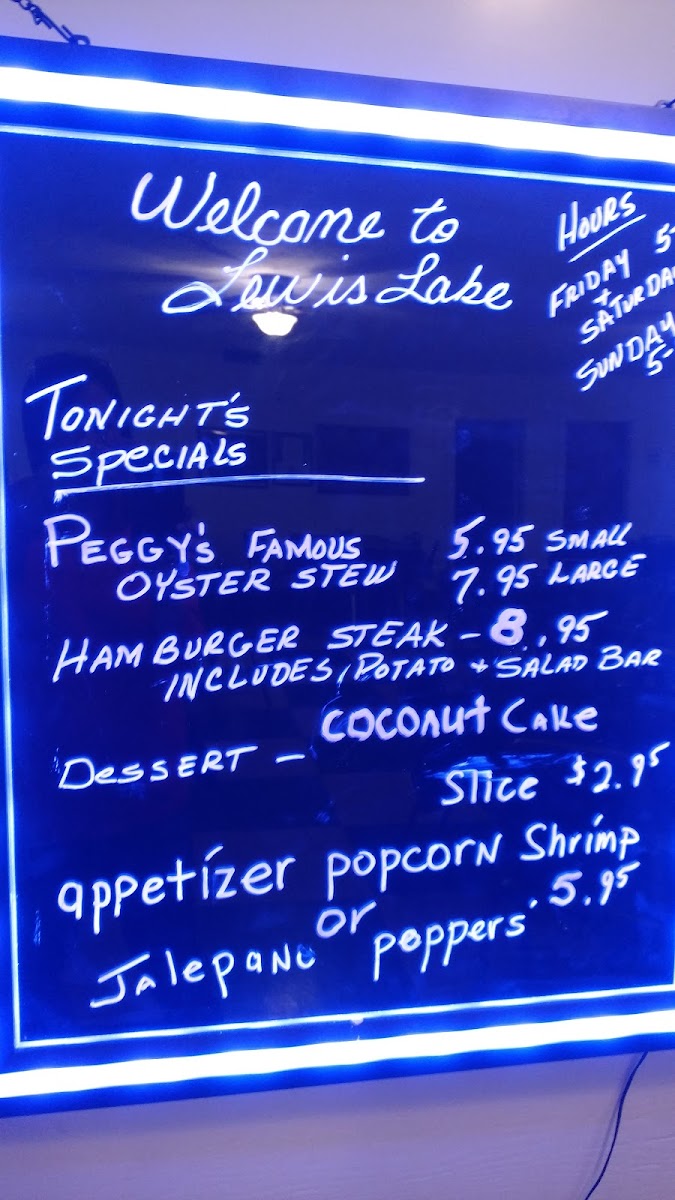 Welcome to
Lewis Lake
HOURS
FRIDAY 5-
+
SATURDA
SUNDAY
5-
TONIGHT'S
SPECIALS
PEGGY'S FAMOUS 5.95 SMALL
OYSTER STEW 7.95 LARGE
HAMBURGER STEAK - 8.95
INCLUDES, POTATO + SALAD BAR
DESSERT - COCONUT Cake
Slice $2.95
appetizer popcorn Shrimp
or 5.95
Jalepano poppers